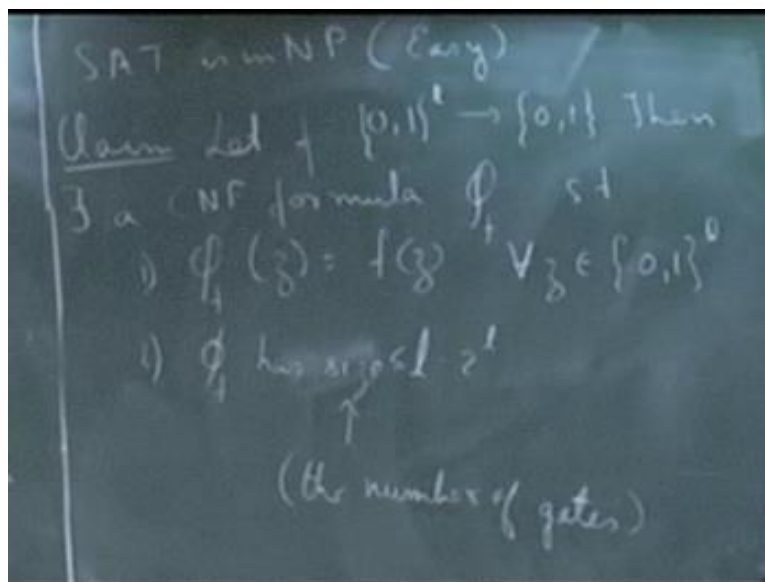 SAT is in NP (Easy)
Claim Let f {0,1}^l → {0,1} Then
∃ a CNF formula φ_f st
1) φ_f (z) = f(z) ∀ z ∈ {0,1}^l
2) φ_f has size ≤ l · 2^l
↑
(the number of gates)